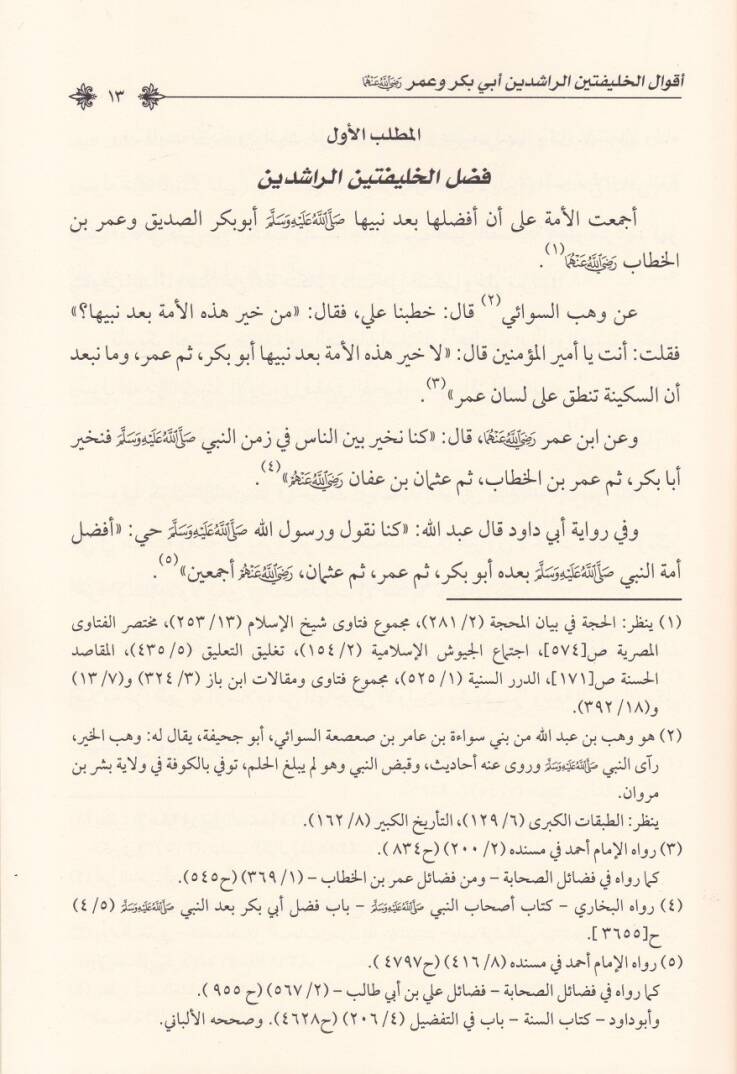 أقوال الخليفتين الراشدين أبي بكر وعمر رَضِيَ اللَّهُ عَنْهُمَا ١٣
المطلب الأول
فضل الخليفتين الراشدين
أجمعت الأمة على أن أفضلها بعد نبيها صَلَّى اللَّهُ عَلَيْهِ وَسَلَّمَ أبوبكر الصديق وعمر بن
الخطاب رَضِيَ اللَّهُ عَنْهُمَا(١).
عن وهب السوائي(٢) قال: خطبنا علي، فقال: «من خير هذه الأمة بعد نبيها؟»
فقلت: أنت يا أمير المؤمنين قال: «لا خير هذه الأمة بعد نبيها أبو بكر، ثم عمر، وما نبعد
أن السكينة تنطق على لسان عمر»(٣).
وعن ابن عمر رَضِيَ اللَّهُ عَنْهُمَا، قال: «كنا نخير بين الناس في زمن النبي صَلَّى اللَّهُ عَلَيْهِ وَسَلَّمَ فنخير
أبا بكر، ثم عمر بن الخطاب، ثم عثمان بن عفان رَضِيَ اللَّهُ عَنْهُمْ»(٤).
وفي رواية أبي داود قال عبد الله: «كنا نقول ورسول الله صَلَّى اللَّهُ عَلَيْهِ وَسَلَّمَ حي: «أفضل
أمة النبي صَلَّى اللَّهُ عَلَيْهِ وَسَلَّمَ بعده أبو بكر، ثم عمر، ثم عثمان، رَضِيَ اللَّهُ عَنْهُمْ أجمعين»(٥).
(١) ينظر: الحجة في بيان المحجة (٢/ ٢٨١)، مجموع فتاوى شيخ الإسلام (١٣/ ٢٥٣)، مختصر الفتاوى
المصرية ص[٥٧٤]، اجتماع الجيوش الإسلامية (٢/ ١٥٤)، تغليق التعليق (٥/ ٤٣٥)، المقاصد
الحسنة ص[١٧١]، الدرر السنية (١/ ٥٢٥)، مجموع فتاوى ومقالات ابن باز (٣/ ٣٢٤) و(٧/ ١٣)
و(١٨/ ٣٩٢).
(٢) هو وهب بن عبد الله من بني سواءة بن عامر بن صعصعة السوائي، أبو جحيفة، يقال له: وهب الخير،
رآى النبي صَلَّى اللَّهُ عَلَيْهِ وَسَلَّمَ وروى عنه أحاديث، وقبض النبي وهو لم يبلغ الحلم، توفي بالكوفة في ولاية بشر بن
مروان.
ينظر: الطبقات الكبرى (٦/ ١٢٩)، التأريخ الكبير (٨/ ١٦٢).
(٣) رواه الإمام أحمد في مسنده (٢/ ٢٠٠) (ح٨٣٤).
كما رواه في فضائل الصحابة - ومن فضائل عمر بن الخطاب - (١/ ٣٦٩) (ح٥٤٥).
(٤) رواه البخاري - كتاب أصحاب النبي صَلَّى اللَّهُ عَلَيْهِ وَسَلَّمَ - باب فضل أبي بكر بعد النبي صَلَّى اللَّهُ عَلَيْهِ وَسَلَّمَ (٥/ ٤)
ح[٣٦٥٥].
(٥) رواه الإمام أحمد في مسنده (٨/ ٤١٦) (ح٤٧٩٧).
كما رواه في فضائل الصحابة - فضائل علي بن أبي طالب - (٢/ ٥٦٧) (ح ٩٥٥).
وأبوداود - كتاب السنة - باب في التفضيل (٤/ ٢٠٦) (ح٤٦٢٨). وصححه الألباني.